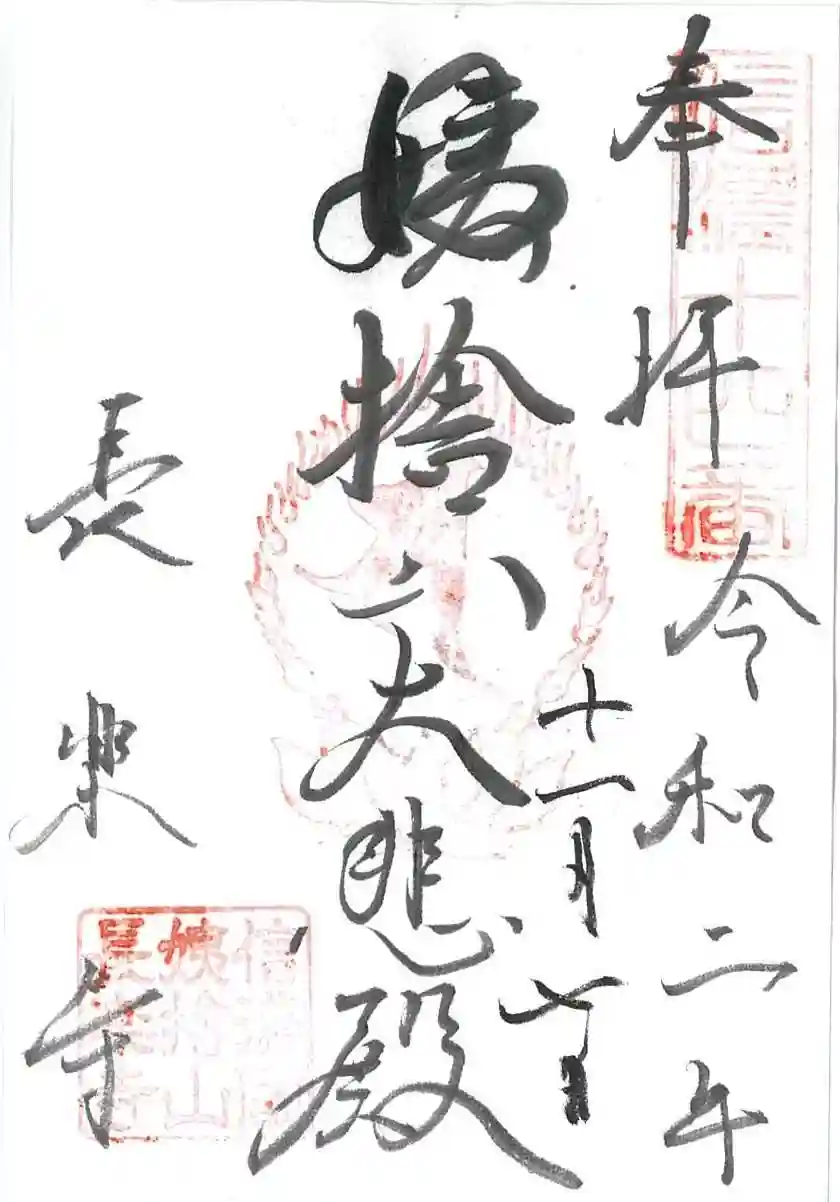 奉拝 令和二年
十一月
姨捨山大悲殿
長楽寺
信濃十四番
姨捨山
長楽寺